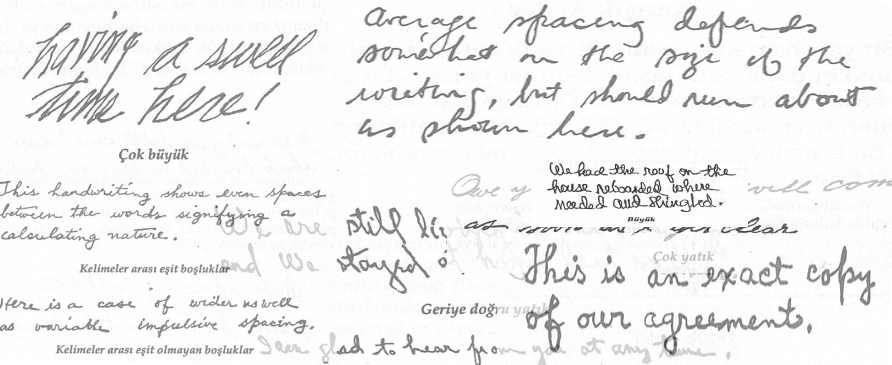 having a swell
time here!
Çok büyük
Average spacing depends
somewhat on the size of the
writing, but should run about
as shown here.
This handwriting shows even spaces
between the words signifying a
calculating nature.
Kelimeler arası eşit boşluklar
We had the roof on the
house reboarded where
needed and shingled.
Büyük
well
We are still
as soon as
and We stayed
Çok yatık
This is an exact copy
of our agreement.
Geriye doğru yatık
Here is a case of wider as well
as variable impulsive spacing.
Kelimeler arası eşit olmayan boşluklar
I am glad to hear from you at any time.